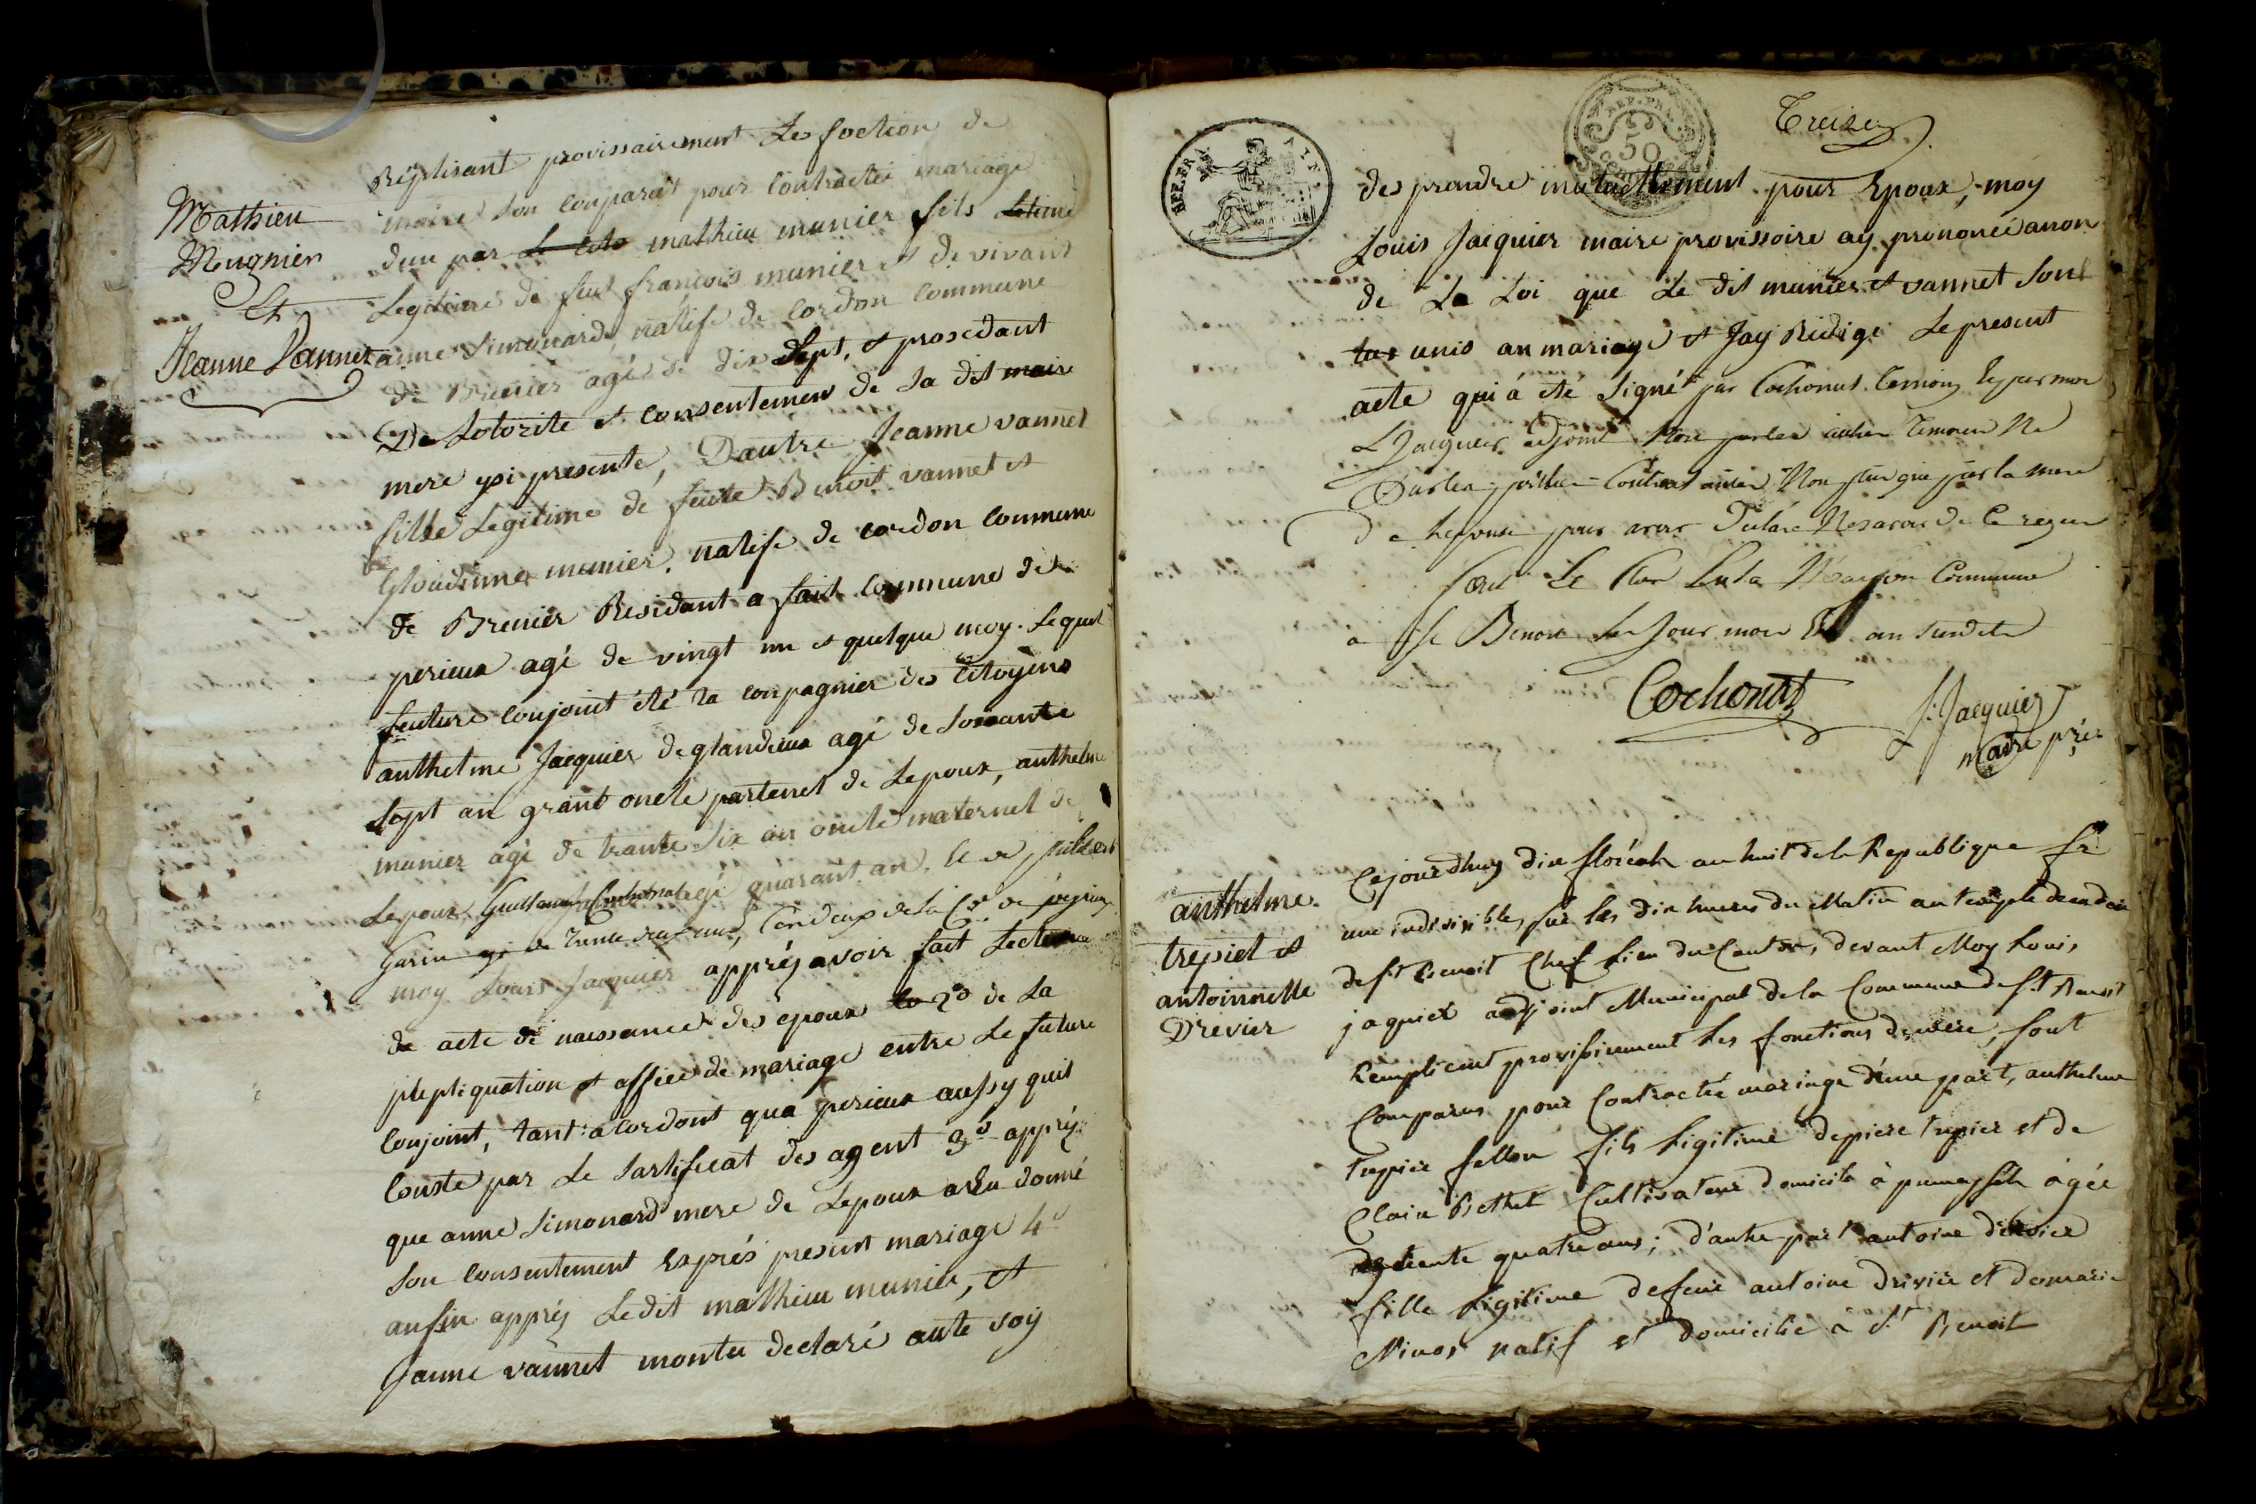 Mathieu
Mugnier
Et
Jeanne Vannet
Réplisant provissairement Les foction de
maire Son conparût pour Contracter mariage
dun par Le cito mathieu munier fils
Legitime de feut francois munier et de vivant
anne Simonard, natife de cordon Commune
de Brenier agé de dix Sept, et prosedant
De Lotorite et consentemen de Sa dit maire
mere ysi presente, Dautre Jeanne vannet
fille Legitime de feüte Benoit vannet et
Gloudinne munier, natife de cordon Commune
de Brenier Residant a fait Commune de
perieux agé de vingt un et quelque moy. Lequel
feuture conjoint été ra conpagnier des Citoyens
anthelme Jacquier de glandieux agé de Soixante
Sept an grant oncle parternel de Lepoux, anthelme
munier agé de trante Six an oncle maternel de
Lepoux Guillaume Cochonat agé quarant an.
Garin agé de Trente
moy Louis Jacquier appréj avoir fait Lecture
de acte de naissance des epoux 2º de La
plepliquation et affice de mariage entre Le future
Conjoint, tant a Cordont qua perieux aussy quil
Conste par Le Sartificat des agent 3º appréj
que anne Simonard mere de Lepoux a donné
Son Consentement Exprés present mariage 4º
anfin appréj Ledit mathieu munier, et
Janne vannet montu declaré aute voÿ
REP. FRA. AIN.
REP. FRA.
50
CENTIMES
Treize
des prendre mutuellement pour Epoux, moy
Louis Jacquier maire provissoire aÿ prononcé anon
de La Loi que Le dit munier et vannet Sont
unis an mariage et Jay Rédigé Le present
acte qui á été Signé par Cochonat temoin Et par moy
L Jacquier adjoint Non par les autre Temoin Ne
par la mere
de Lepouse pour avoir Déclaré Ne savoir de Ce requis
fait Le Maison Commune
a St Benoit Les Jour mois Et an susdits
Cochonat
L. Jacquier
maire pré
anthelme
trepiet et
antoinnette
Drevier
Cejourdhuy dix floréal an huit de la Republique fr
une indivisible, sur les dix heures du Matin au temple decadaire
de St Benoit Chef Lieu du Canton, devant Moy Louis
jaquier adjoint Municipal de la Commune de St Benoit
Remplicent provisoirement Les fonctions de mere, sont
Comparus pour Contractée mariage d'une part, anthelme
trepier fellon fils Ligitime de piere trepier et de
Claire Bethet Cultivateur domicile à agée
de trente quatre ans; d'autre part antoine drevier
fille Ligitime de feue antoine drivier et de marie
Minos natif et domicilié à St Benoit